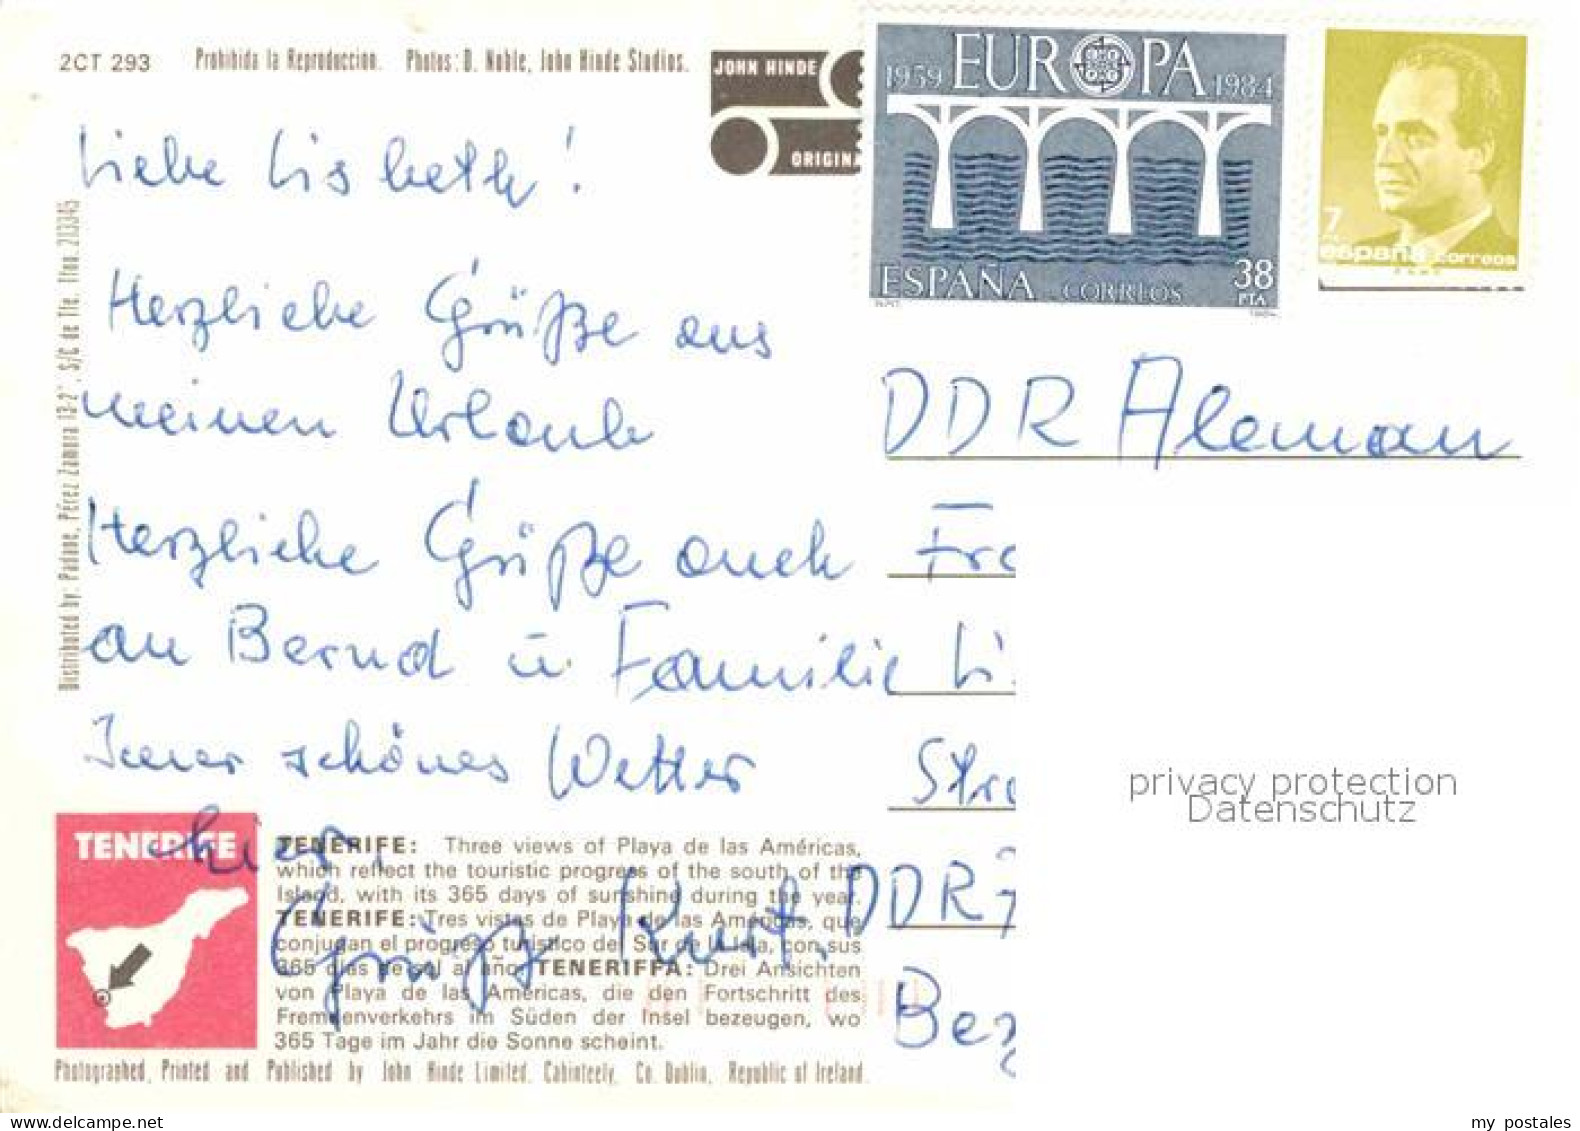 2CT 293 Prohibida la Reproduccion. Photos: D. Noble, John Hinde Studios.
JOHN HINDE
ORIGINA
EUROPA
1959 1984
ESPAÑA CORREOS 38
PTA
1984
7
españa correos
Liebe Lisbeth!
Herzliche Grüße aus
meinen Urlaub
Herzliche Grüße auch
an Bernd u Familie
Immer schönes Wetter
hier.
Grüße Kurt.
DDR Aleman
Fra
Li
Stra
DDR 7
Ber
Distributed by: Padane, Pérez Zamora 13-2°, S/C de Tfe. Tfno. 213345
TENERIFE
TENERIFE: Three views of Playa de las Américas,
which reflect the touristic progress of the south of the
Island, with its 365 days of sunshine during the year.
TENERIFE: Tres vistas de Playa de las Américas, que
conjugan el progreso turistico del Sur de la Isla, con sus
365 dias de sol al año. TENERIFFA: Drei Ansichten
von Playa de las Américas, die den Fortschritt des
Fremdenverkehrs im Süden der Insel bezeugen, wo
365 Tage im Jahr die Sonne scheint.
Photographed, Printed and Published by John Hinde Limited, Cabinteely, Co. Dublin, Republic of Ireland.
privacy protection
Datenschutz
my postales